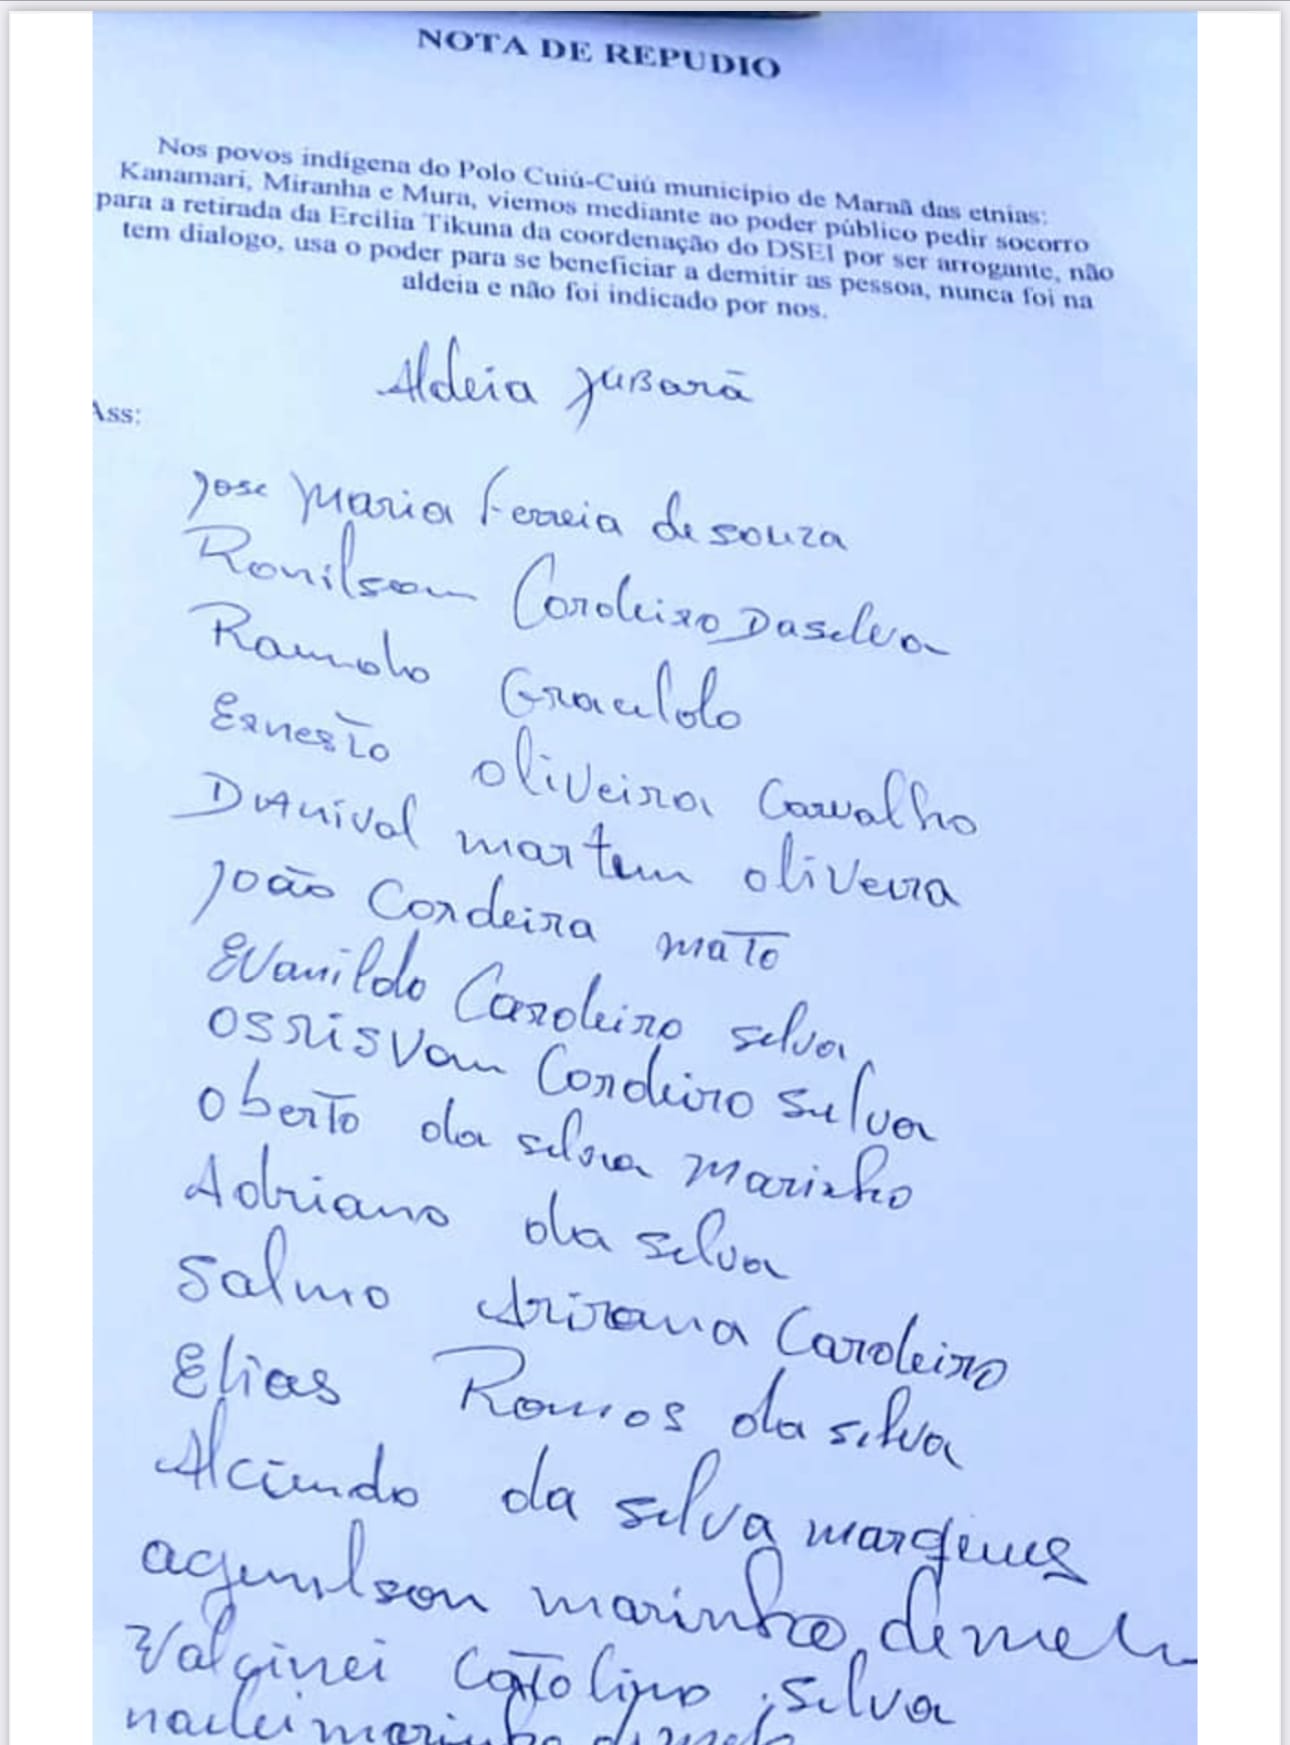 NOTA DE REPUDIO
Nos povos indígena do Polo Cuiú-Cuiú município de Maraã das etnias:
Kanamari, Miranha e Mura, viemos mediante ao poder público pedir socorro
para a retirada da Ercilia Tikuna da coordenação do DSEI por ser arrogante, não
tem dialogo, usa o poder para se beneficiar a demitir as pessoa, nunca foi na
aldeia e não foi indicado por nos.
Aldeia JuBarã
Ass:
Jose Maria Ferreia de souza
Ronilsom Cordeiro Dasilva
Gracildo
Ernesto oliveira Carvalho
martem oliveira
João Cordeira mato
Evanildo Cordeiro silva
osrrisvam Cordeiro silva
oberto da silva Marinho
Adriano da silva
Salmo Arirana Cordeiro
Elias Ramos da silva
Alcindo da silva
marinho de melo
Valcinei Catolino silva
marinho de melo